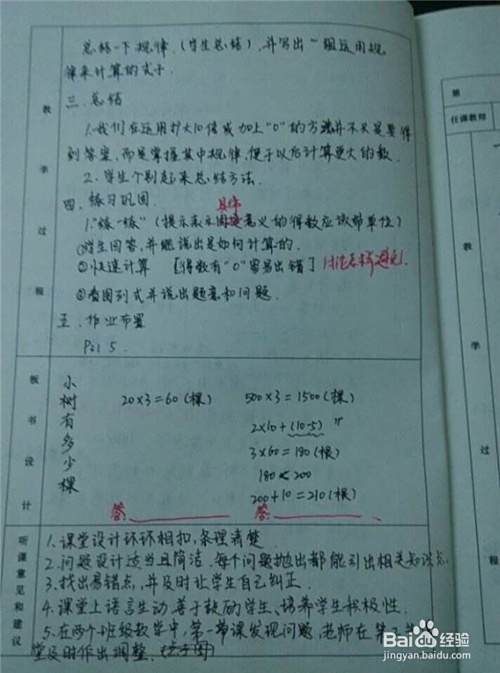 总结一下规律.(学生总结),并写出一组运用规
律来计算的式子.
三.总结
1.我们在运用扩大10倍或加上"0"的方法并不只是要得
到答案,而是掌握其中规律,便于以后计算更大的数.
2.学生个别起来总结方法.
四.练习巩固.
具体
1."练一练"(提示表示 意义的得数应该带单位)
①学生回答,并继说出是如何计算的.
②快速计算 [得数有"0"容易出错] 讨论怎样避免!
③看图列式并说出题意和问题.
五.作业布置
P21 5.
教学过程
板书设计
小树有多少棵
20×3=60(棵)
500×3=1500(棵)
2×10+(10-5)
3×60=180(根)
180<200
200+10=210(根)
答:
答:
听课意见和建议
1.课堂设计环环相扣,条理清楚
2.问题设计适当且简洁,每个问题抛出都能引出相关知识点.
3.找出易错点,并及时让学生自己纠正.
4.课堂上语言生动,善于鼓励学生、培养学生积极性.
5.在两个班级教学中,第一节课发现问题,老师在第
堂及时作出调整.
任课教师
教学过程
Baidu经验
jingyan.baidu.com